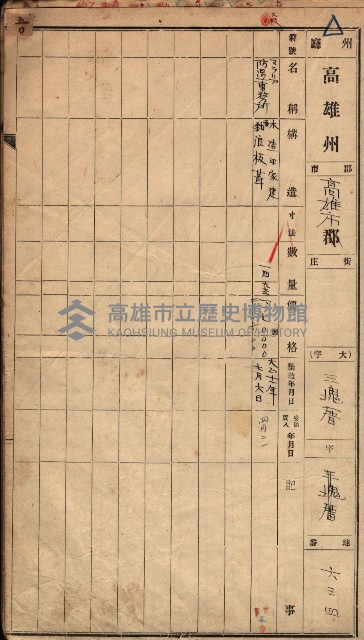 五〇
州
廳
高雄州
郡
市
高雄市
郡
街
庄
大字
三塊厝
字
三塊厝
地番
六三四
符號
名稱
構造
寸法
數量
價格
建築年月日
年月日
記事
マラリア
防遏事務所
木造平家建
浪板葺
大正十一年
七月六日
高雄市立歷史博物館
KAOHSIUNG MUSEUM OF HISTORY